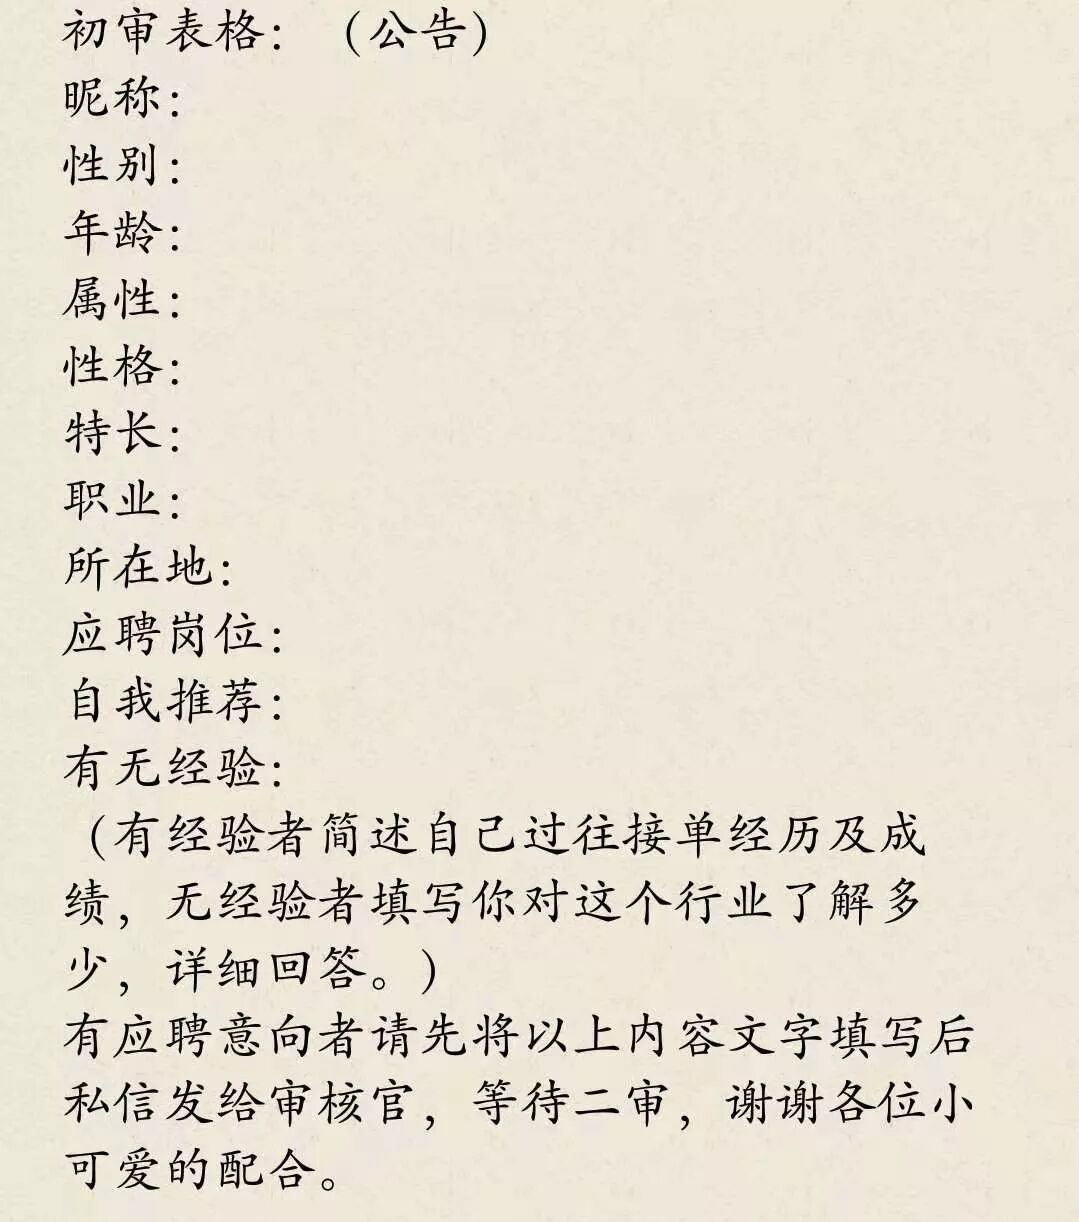 初审表格：（公告）
昵称：
性别：
年龄：
属性：
性格：
特长：
职业：
所在地：
应聘岗位：
自我推荐：
有无经验：
（有经验者简述自己过往接单经历及成
绩，无经验者填写你对这个行业了解多
少，详细回答。）
有应聘意向者请先将以上内容文字填写后
私信发给审核官，等待二审，谢谢各位小
可爱的配合。